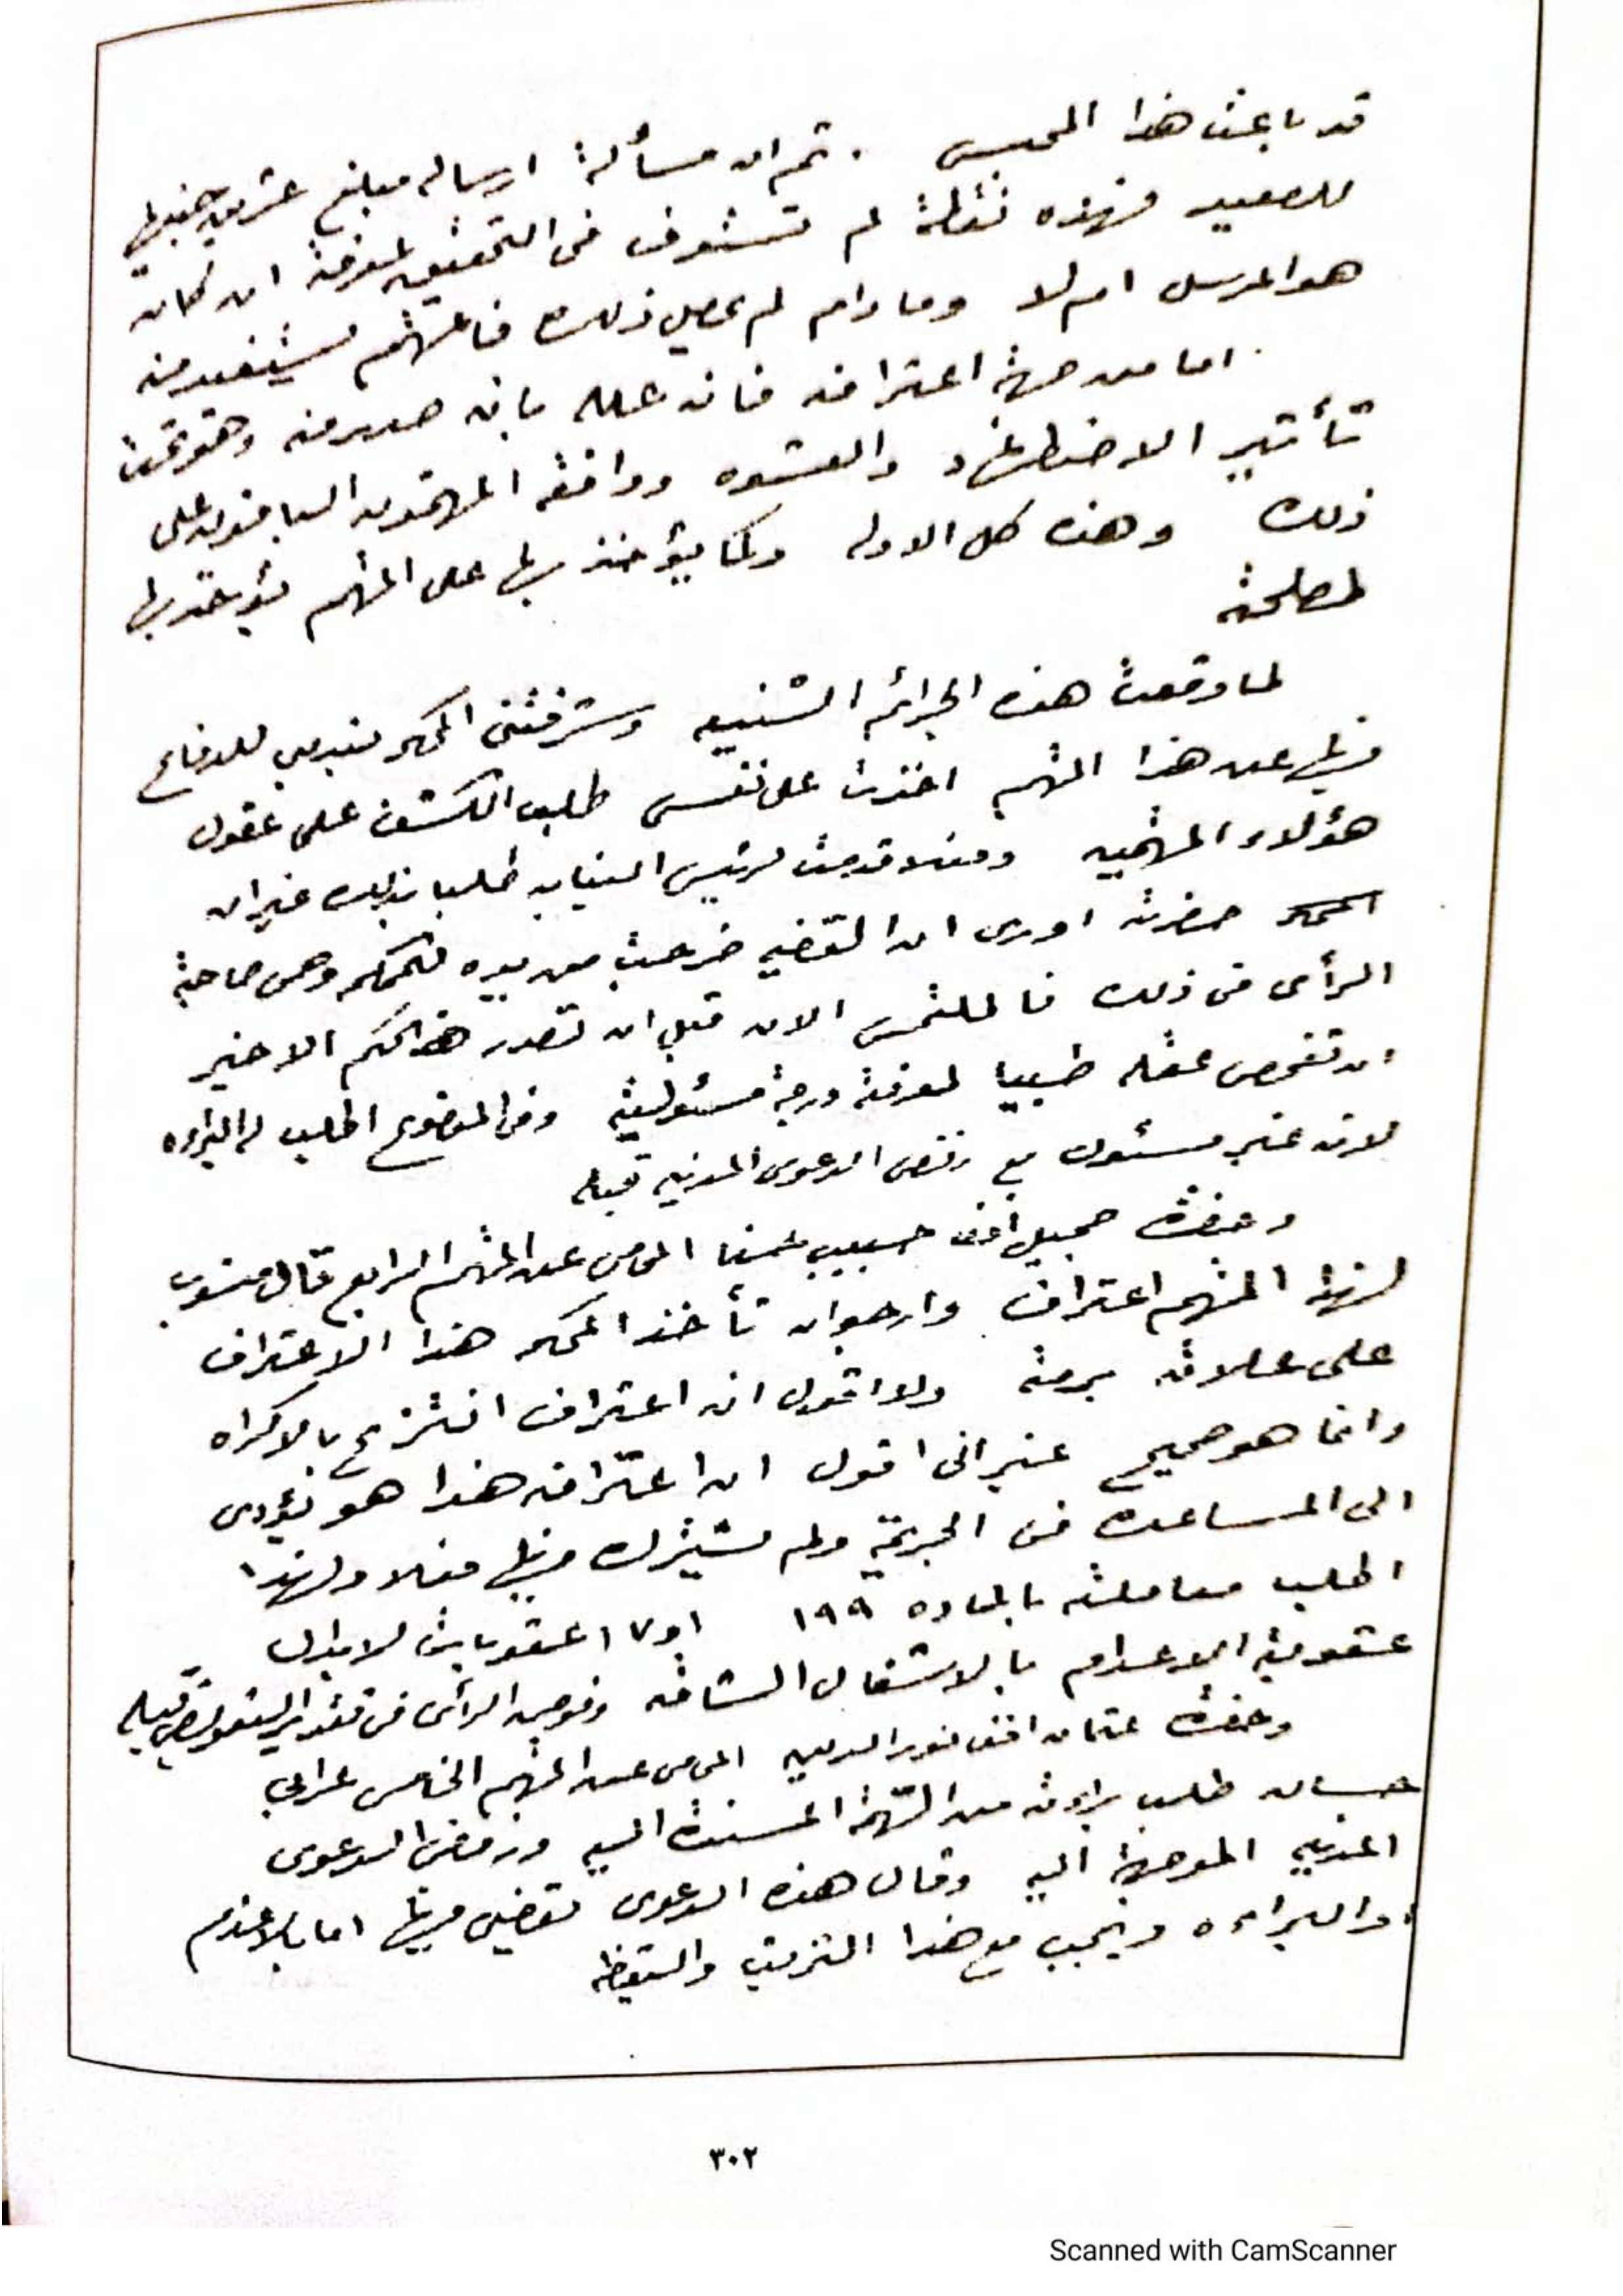 قد باعت هذا المحبس . ثم ان مسألة ارسال مبلغ عشرين جنيها
للصعيد فهذه نقطة لم تستوف فى التحقيق لمعرفة ان كان
هو المرسل ام لا وما دام لم يحصل ذلك فالمتهم يستفيد منه
اما من جهة اعترافه فانه علله بانه صدر منه وهو تحت
تأثير الاضطهاد والقسوه ووافقه المتهمون السابقون على
ذلك وهذه كل الادله وكما يؤخذ بها على المتهم يؤخذ بها
لمصلحته
لما وقعت هذه الجرائم الشنيعه وشرفتنى المحكمه بندبى للدفاع
فيها عن هذا المتهم اخذت على نفسى طلب الكشف على عقول
هؤلاء المتهمين وفعلا قدمت لرئيس النيابه طلبا بذلك غير ان
حضرته اورى ان القضيه خرجت من يده للمحكمه وهى صاحبة
الرأى فى ذلك فالملتمس الان قبل ان تصدر هذا الحكم الاخير
ان تفحص عقله طبيا لمعرفة درجة مسئوليته وفى الموضوع اطلب له البراءه
لانه غير مسئول مع رفض الدعوى المدنيه قبله
وحضرة جميل افندى حبيب المحامى عن المتهم الرابع قال منسوب
لهذا المتهم اعتراف وارجو ان تأخذ المحكمه هذا الاعتراف
على علاته برمته ولا اقول ان اعترافه انتزع بالاكراه
وانما هو صحيح غير انى اقول ان اعترافه هذا هو يؤدى
الى المساعدة فى الجريمة ولم يشترك فيها فعلا ولهذا
اطلب معاملته بالماده ١٩٩ او ١٧ عقوبات لابدال
عقوبة الاعدام بالاشغال الشاقه وفوض الرأى فى تقدير التعويض قبله
وحضرة عثمان افندى نور الدين المحامى عن المتهم الخامس عرابى
حسان طلب براءته من التهمة المسندة اليه ورفض الدعوى
المدنيه الموجهة اليه وقال هذه الدعوى تقضى فيها اما بالاعدام
او البراءه ويجب مع هذا التريث واليقظه
٣٠٢
Scanned with CamScanner